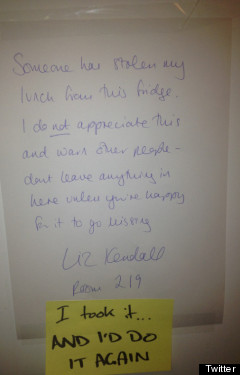 Someone has stolen my
lunch from this fridge.
I do not appreciate this
and warn other people -
dont leave anything in
here unless you're happy
for it to go missing
Liz Kendall
Room 219
I took it...
AND I'D DO
IT AGAIN
Twitter